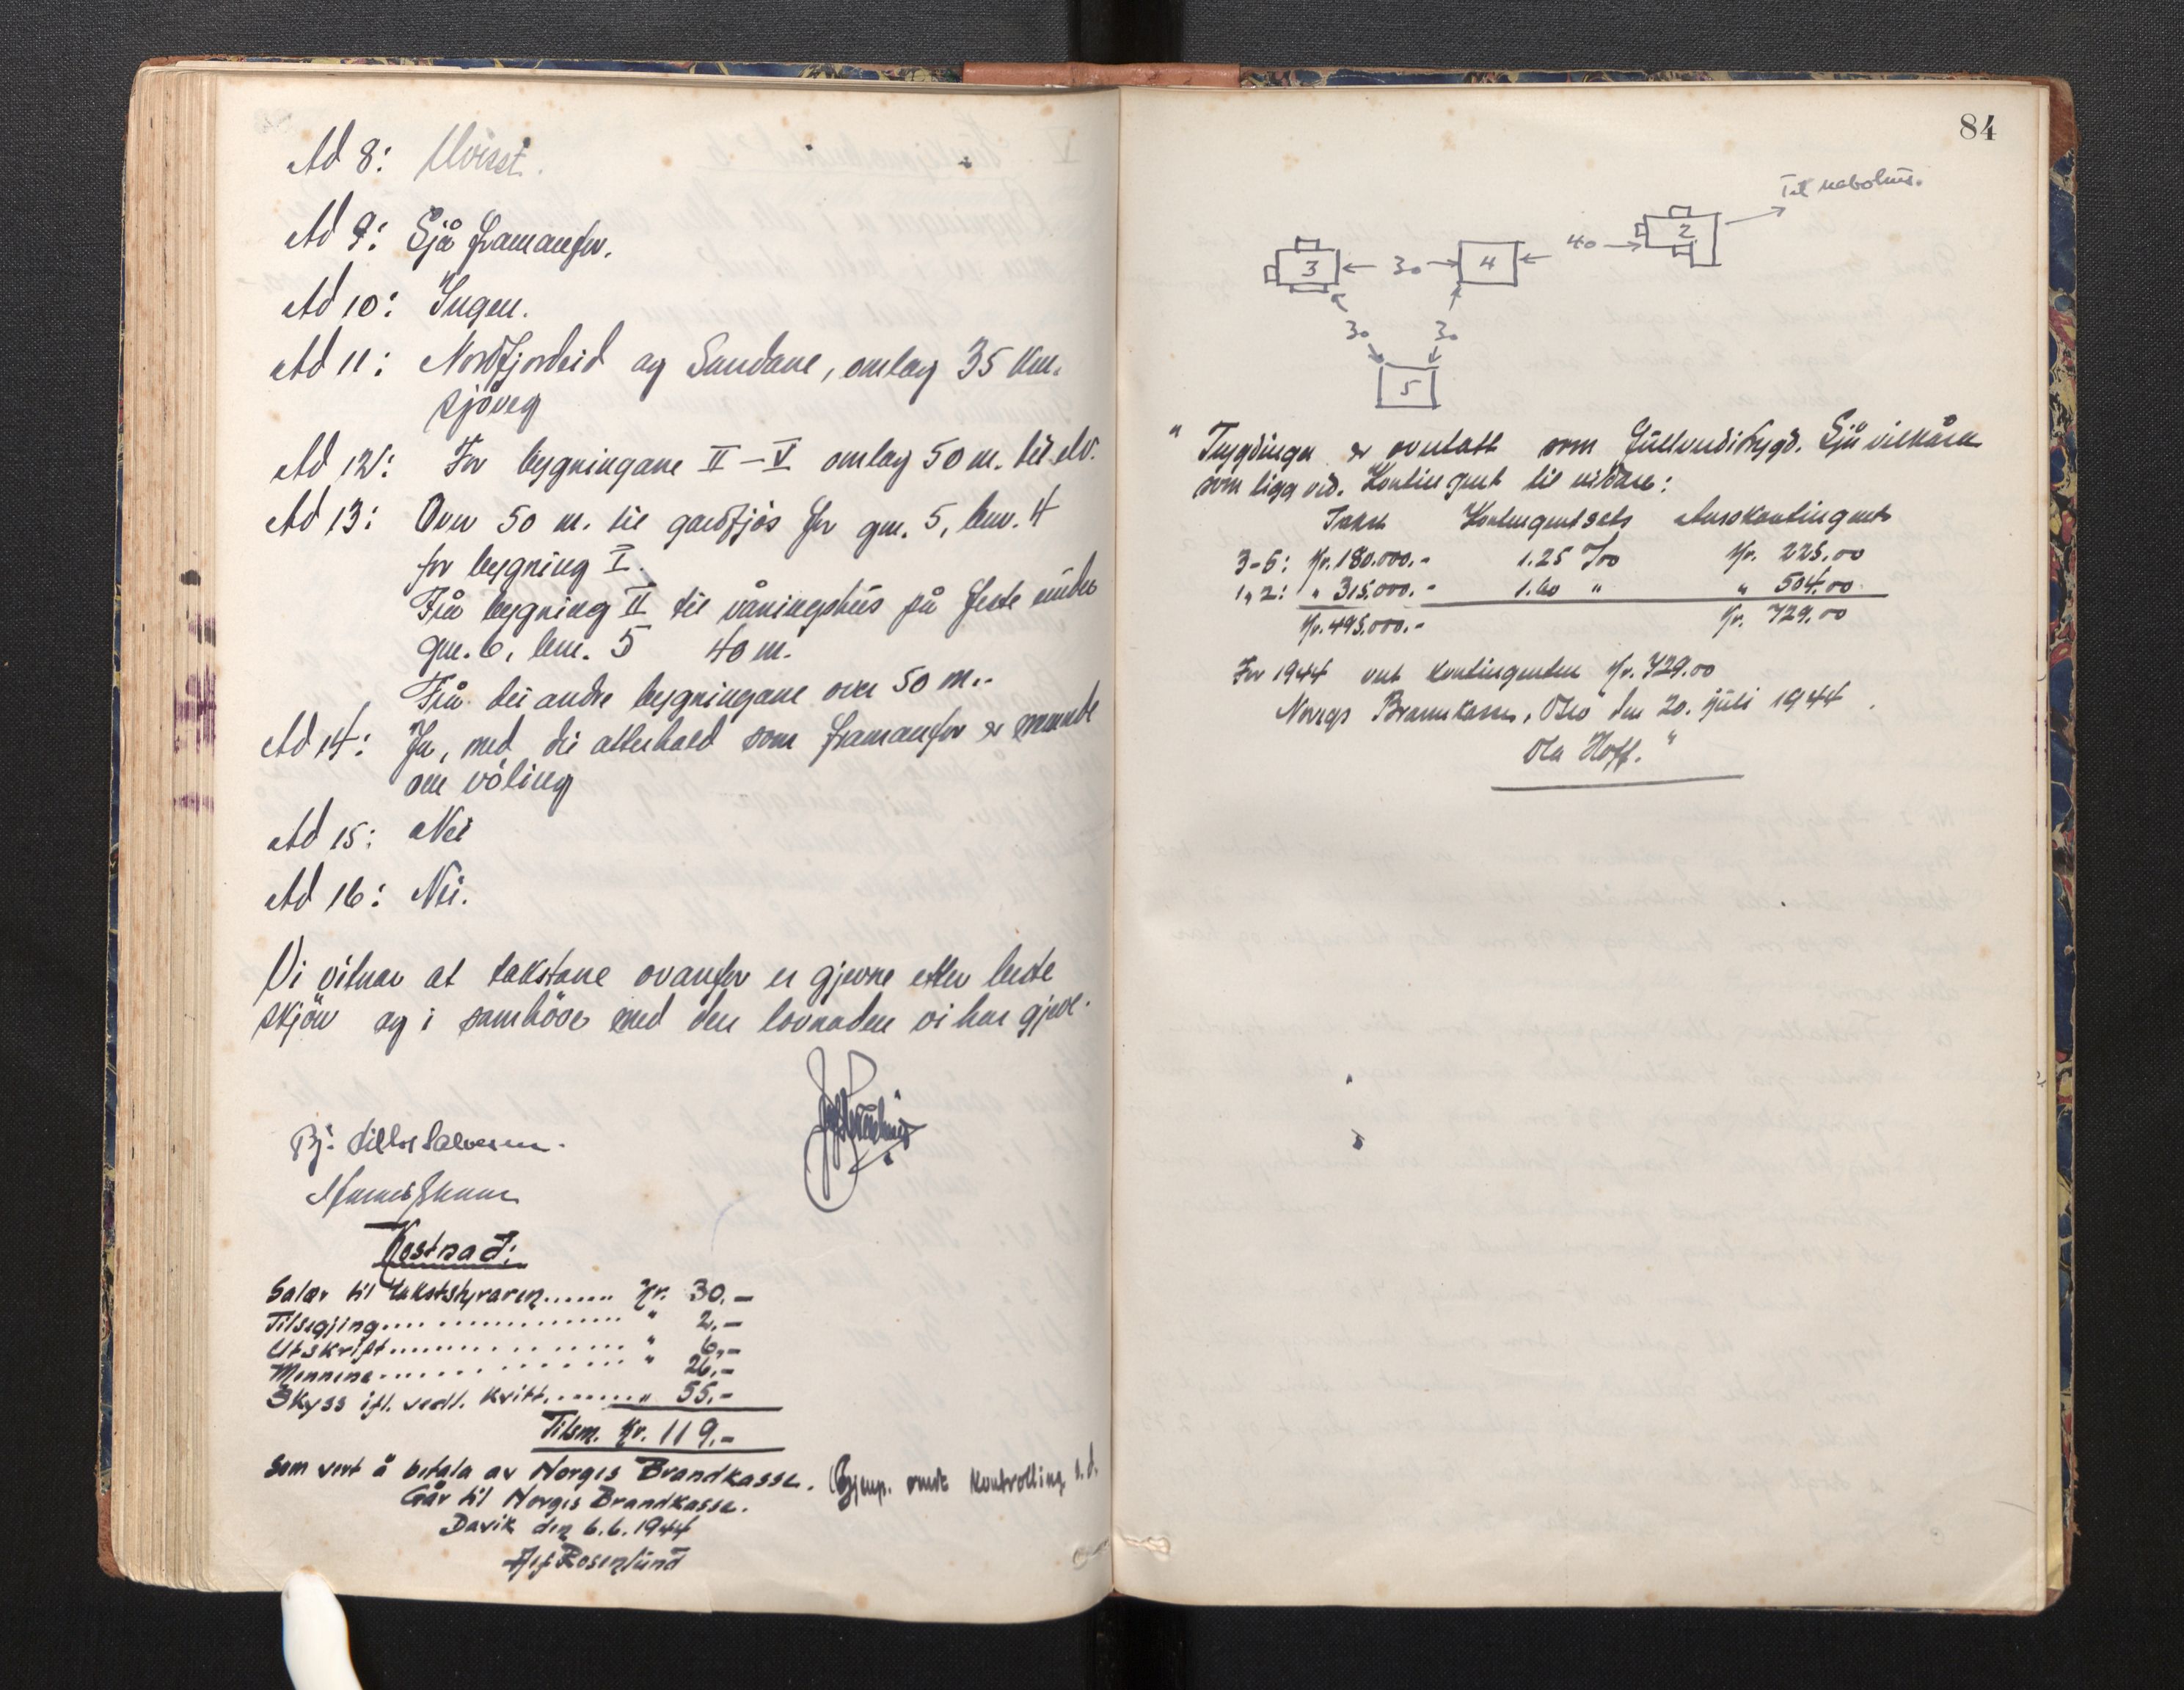 Ad 8: Uvisst.
Ad 9: Sjå framanfor.
Ad 10: Ingen.
Ad 11: Nordfjordeid og Sandane, omlag 35 km.
sjöveg
Ad 12: For bygningane II - V omlag 50 m. til elv.
Ad 13: Over 50 m. til gardfjös for gnr. 5, bnr. 4
for bygning I.
Frå bygning II til våningshus på feste under
gnr. 6, bnr. 5 40 m.
Frå dei andre bygningane over 50 m.
Ad 14: Ja, med dei atterhald som framanfor er nemnde
om völing
Ad 15: Nei
Ad 16: Nei.
Vi vitnar at takstane ovanfor er gjevne etter beste
skjön og i samhöve med den lovnaden vi har gjeve.
Kostnad:
Salær til takststyraren....... Kr. 30.-
Tilsegjing.... " 2.-
Utskrift.... " 6.-
Mennene.... " 26.-
Skyss ifl. vedl. kvitt........ " 55.-
Tilsm. Kr. 119.-
Som vert å betala av Norges Brandkasse.
kontrolling s.d.
Går til Norges Brandkasse.
Davik den 6.6.1944
Alf Rosenlund
84
Til nabohus.
3 ← 30 → 4 ← 40 → 2
30 30
5
" Trygdinga er overtatt som fullverditrygd. Sjå vilkåra
som ligg ved. Kontingent til vidare:
Takst Kontingentsats Årskontingent
3-5: Kr. 180.000.- 1.25 ‰ Kr. 225.00
1, 2: " 315.000.- 1.60 " " 504.00
Kr. 495.000.- Kr. 729.00
For 1944 vert kontingenten Kr. 729.00
Noregs Brannkasse, Oslo den 20. juli 1944.
Ola Hoff. "